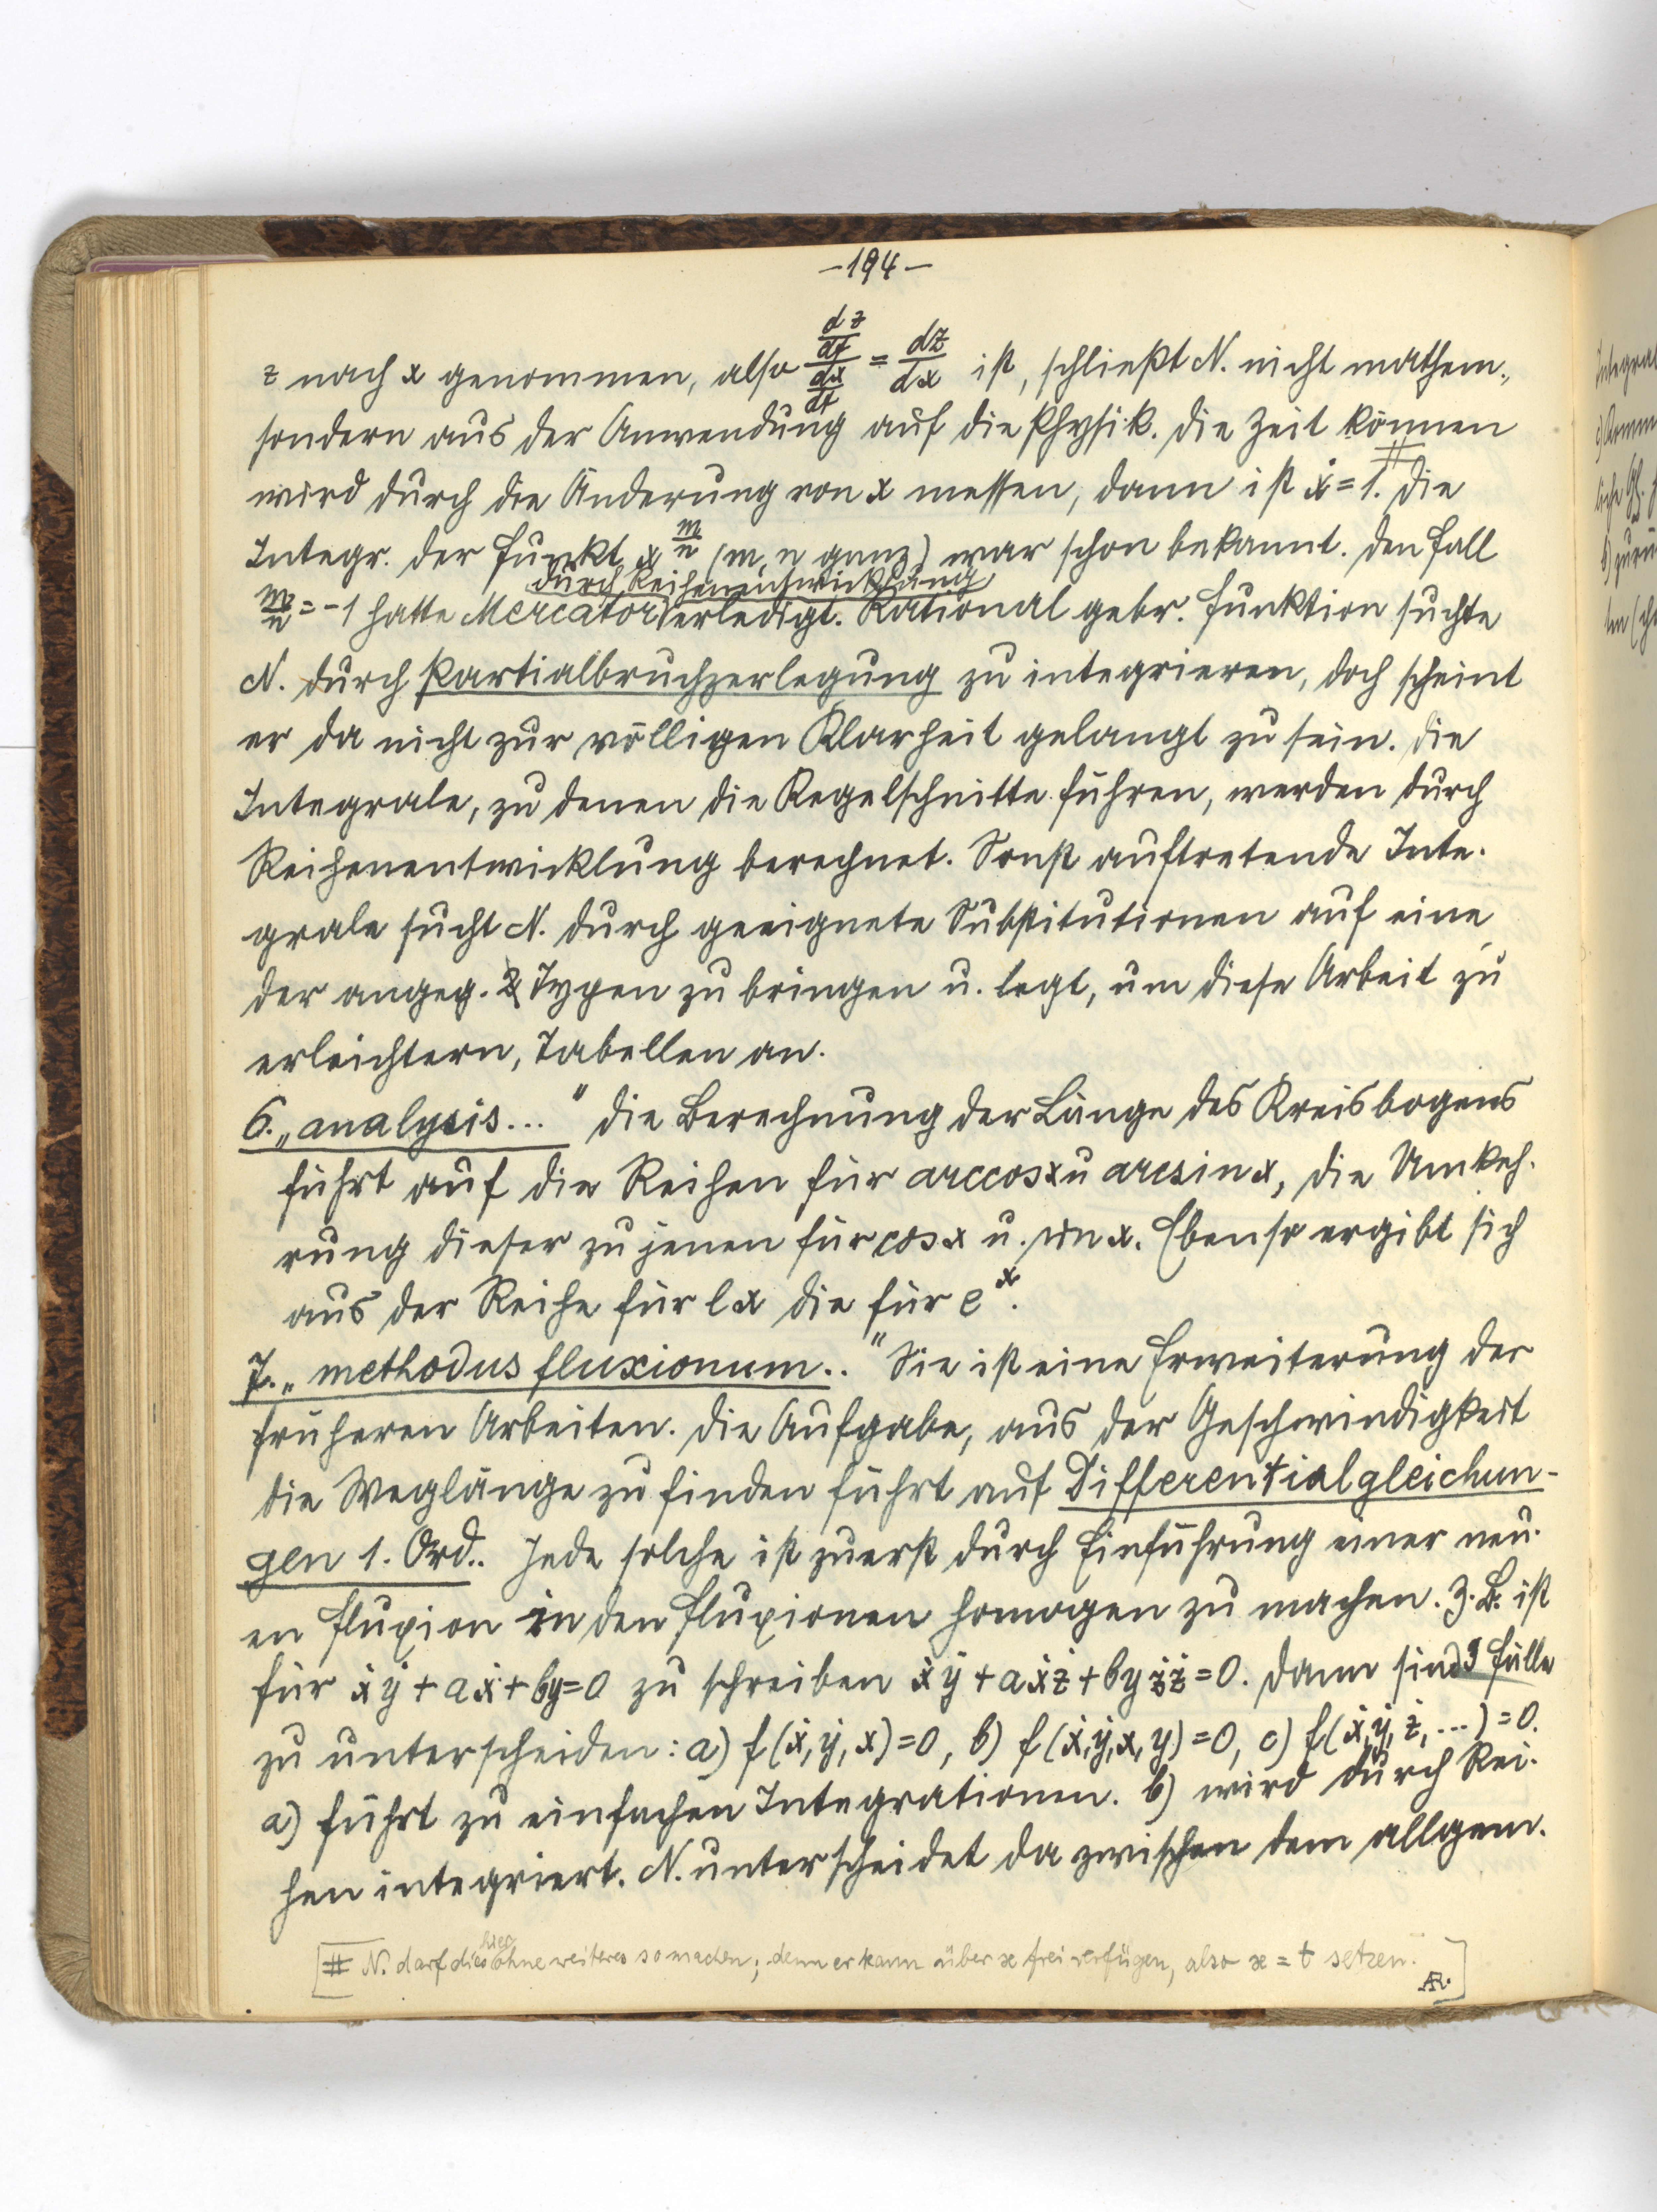 -194-
z nach x genommen, also (dz/dt)/(dx/dt) = dz/dx ist, schließt N. nicht mathem.,
sondern aus der Anwendung auf die Physik. Die Zeit können
wird durch die Änderung von x messen, dann ist ẋ=1.# Die
Integr. der Funkt. x^(m/n) (m, n ganz) war schon bekannt. Den Fall
durch Reihenentwicklung
m/n = -1 hatte Mercator erledigt. Rational gebr. Funktion suchte
N. durch Partialbruchzerlegung zu integrieren, doch scheint
er da nicht zur völligen Klarheit gelangt zu sein. Die
Integrale, zu denen die Kegelschnitte führen, werden durch
Reihenentwicklung berechnet. Sonst auftretende Inte-
grale sucht N. durch geeignete Substitutionen auf eine
der angeg. 2 Typen zu bringen u. legt, um diese Arbeit zu
erleichtern, Tabellen an.
6. „analysis..." Die Berechnung der Länge des Kreisbogens
führt auf die Reihen für arccosx u arcsinx, die Umkeh-
rung dieser zu jenen für cosx u. sinx. Ebenso ergibt sich
aus der Reihe für lx die für e^x.
7. „methodus fluxionum.." Sie ist eine Erweiterung der
früheren Arbeiten. Die Aufgabe, aus der Geschwindigkeit
die Weglänge zu finden führt auf Differentialgleichun-
gen 1. Ord.. Jede solche ist zuerst durch Einführung einer neu-
en Fluxion in den Fluxionen homogen zu machen. Z.B. ist
für ẋẏ+aẋ+by=0 zu schreiben ẋẏ+aẋż+byżż=0. Dann sind 3 Fälle
zu unterscheiden: a) f(ẋ,ẏ,x)=0, b) f(ẋ,ẏ,x,y)=0, c) f(ẋ,ẏ,ż,...)=0.
a) führt zu einfachen Integrationen. b) wird durch Rei-
hen integriert. N. unterscheidet da zwischen dem allgem.
hier
[# N. darf dies ohne weiteres so machen; denn er kann über x frei verfügen, also x = t setzen.
AR.]